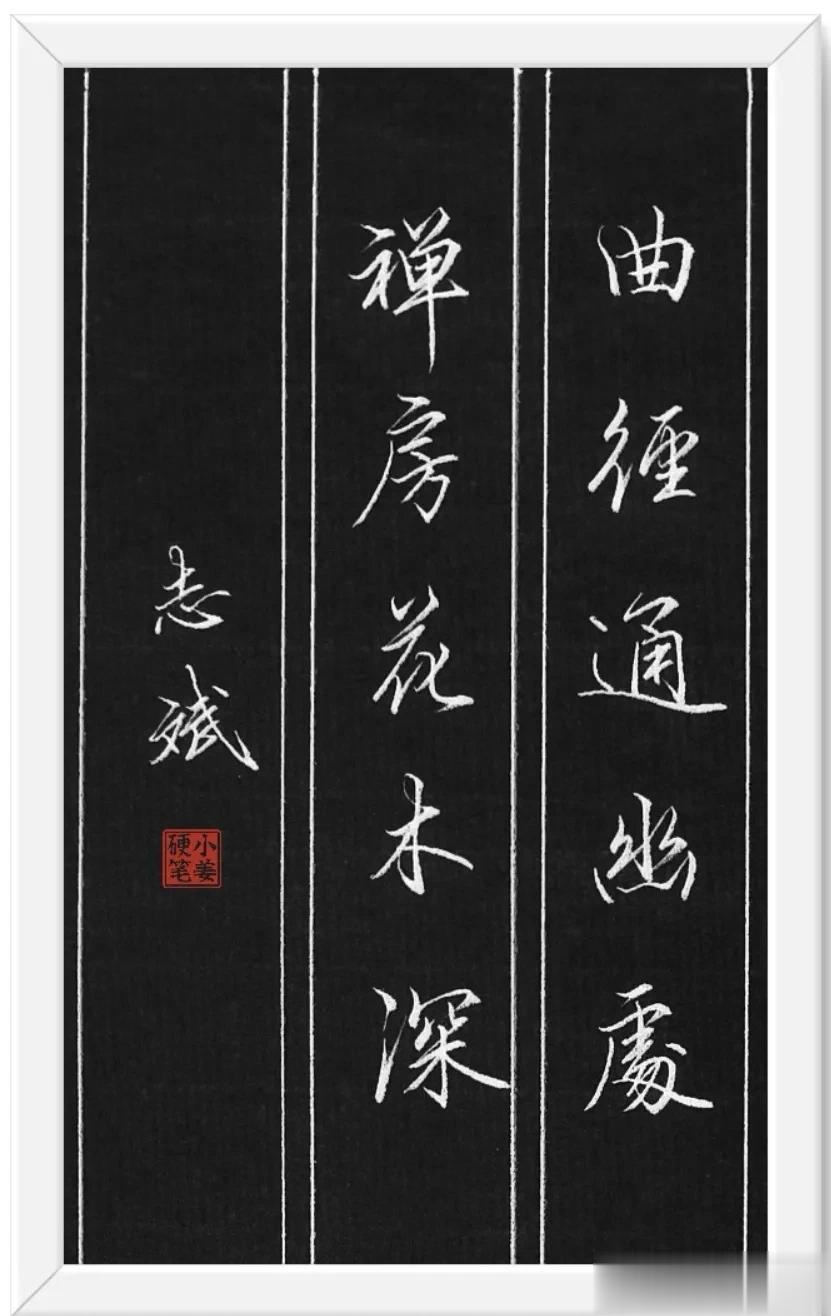 曲徑通幽處
禅房花木深
志斌
小姜
硬笔